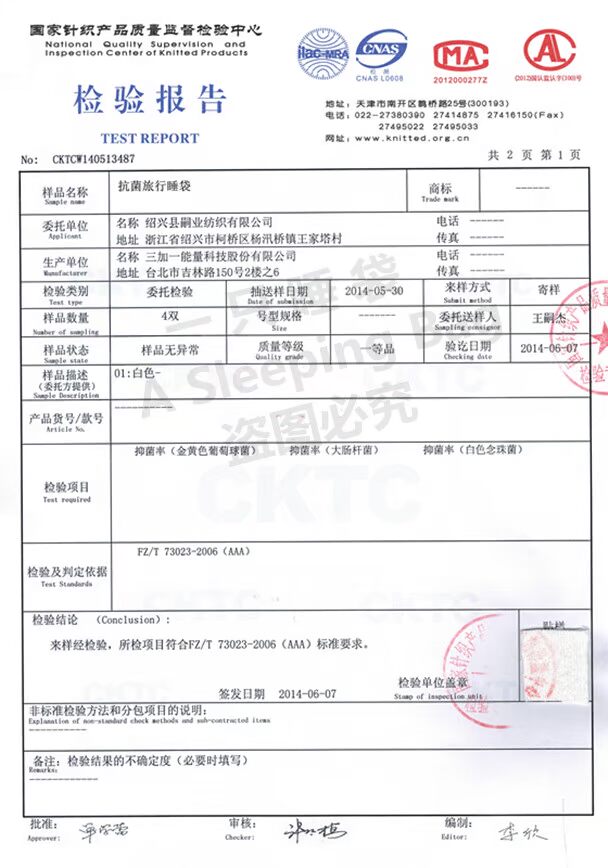 国家针织产品质量监督检验中心
National Quality Supervision and
Inspection Center of Knitted Products
ilac-MRA
CNAS
检测
CNAS L0608
MA
2012000277Z
AL
(2012)国认监认字(100)号
检验报告
TEST REPORT
地址: 天津市南开区鹊桥路25号(300193)
电话: 022-27380390 27414875 27416150(Fax)
27495022 27495033
网址: www.knitted.org.cn
No: CKTCW140513487
共 2 页 第 1 页
样品名称 抗菌旅行睡袋 商标 ------
Sample name Trade mark
委托单位 名称 绍兴县嗣业纺织有限公司 电话 ------
Applicant 地址 浙江省绍兴市柯桥区杨汛桥镇王家塔村 传真 ------
生产单位 名称 三加一能量科技股份有限公司 电话 ------
Manufacturer 地址 台北市吉林路150号2楼之6 传真 ------
检验类别 委托检验 抽送样日期 2014-05-30 来样方式 寄样
Test type Date of submission Submit method
样品数量 4双 号型规格 ------ 委托送样人 王嗣杰
Number of sampling Size Sampling consignor
样品状态 样品无异常 质量等级 一等品 验讫日期 2014-06-07
Sample state Quality grade Checking date
样品描述 01:白色-
(委托方提供)
Sample Description
产品货号/款号 ------------
Article No.
检验项目 抑菌率(金黄色葡萄球菌) 抑菌率(大肠杆菌) 抑菌率(白色念珠菌)
Test required
检验及判定依据 FZ/T 73023-2006(AAA)
Test Standards
检验结论 (Conclusion):
来样经检验,所检项目符合FZ/T 73023-2006(AAA)标准要求。
贴样
检验单位盖章
Stamp of inspection unit
签发日期 2014-06-07
非标准检验方法和分包项目的说明:
Explanation of non-standard check methods and sub-contracted items
------------
备注: 检验结果的不确定度(必要时填写)
Remarks:
------------
批准: 审核: 编制: 李欣
Approver: Checker: Editor:
一只睡袋
A Sleeping Bag
盗图必究
CKTC